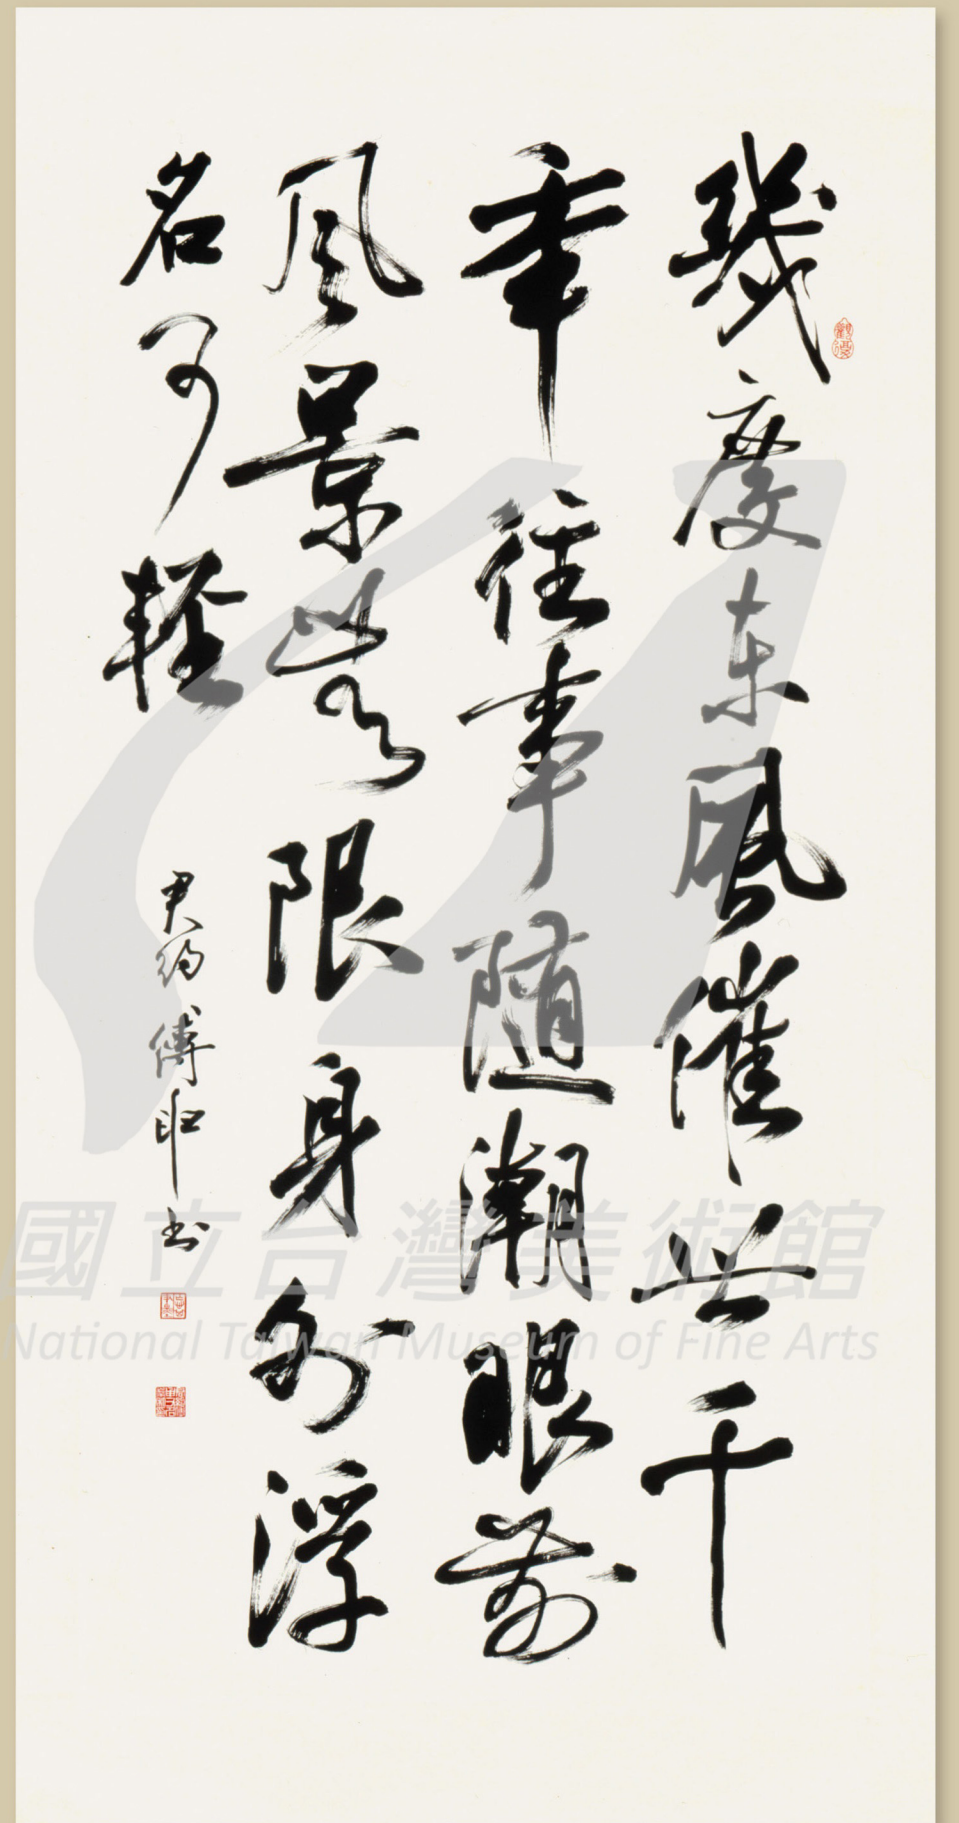 幾度东風催世千
年往事隨潮眼前
風景無限身外浮
名可輕
君約傅申书
國立台灣美術館
National Taiwan Museum of Fine Arts